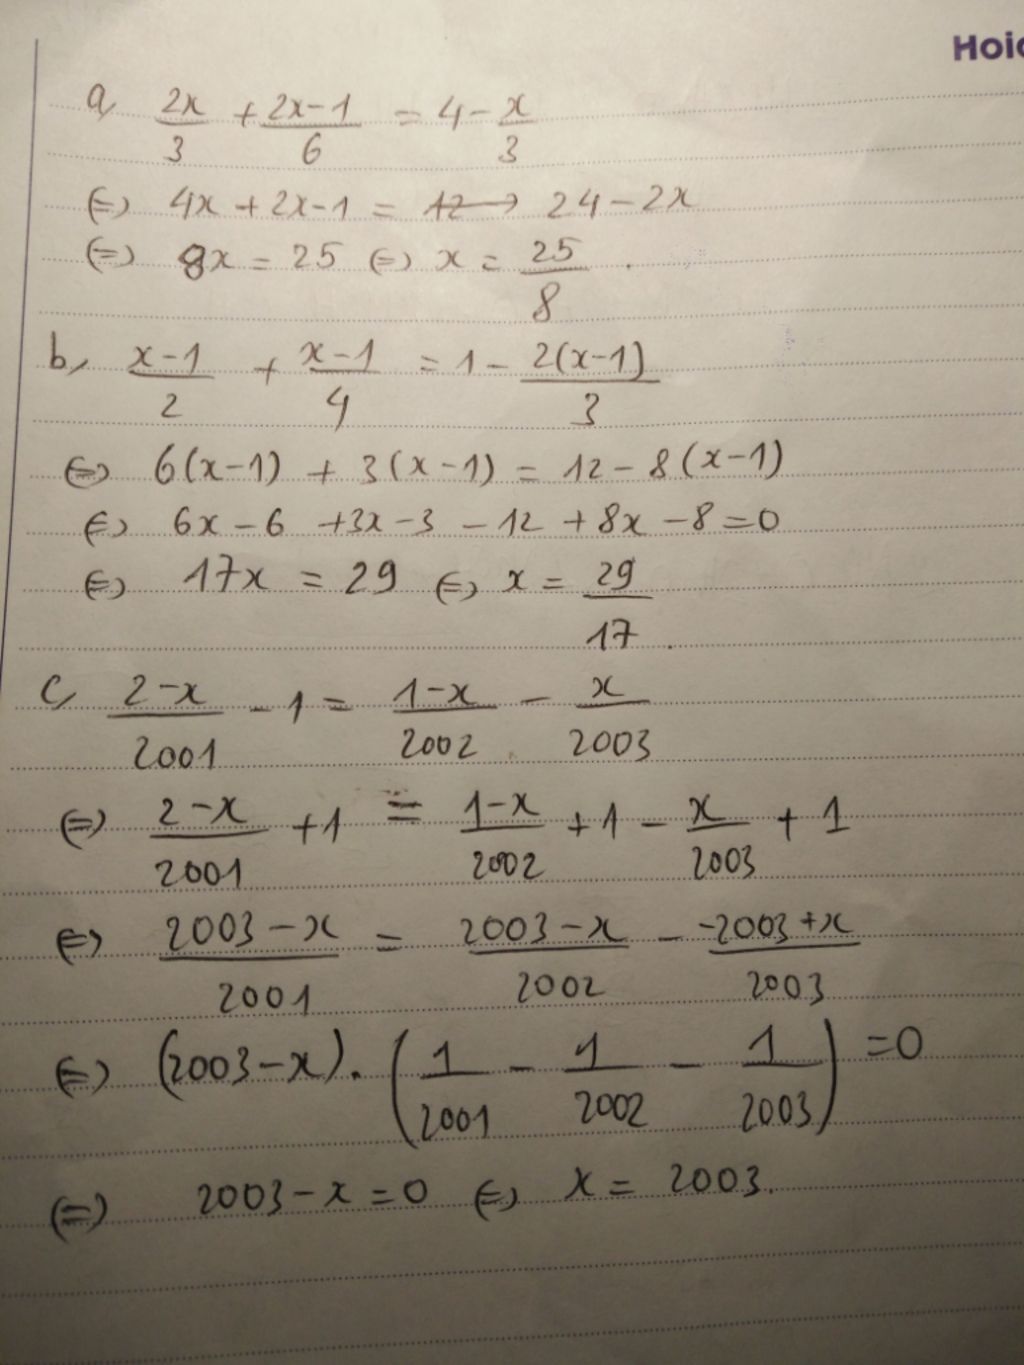 Hoid
a, 2x/3 + 2x-1/6 = 4 - x/3
(=) 4x + 2x-1 = 12 → 24 - 2x
(=) 8x = 25 (=) x = 25/8 .
b, x-1/2 + x-1/4 = 1 - 2(x-1)/3
(=) 6(x-1) + 3(x-1) = 12 - 8(x-1)
(=) 6x - 6 + 3x - 3 - 12 + 8x - 8 = 0
(=) 17x = 29 (=) x = 29/17 .
c, 2-x/2001 - 1 = 1-x/2002 - x/2003
(=) 2-x/2001 + 1 = 1-x/2002 + 1 - x/2003 + 1
(=) 2003-x/2001 = 2003-x/2002 - -2003+x/2003
(=) (2003-x) . (1/2001 - 1/2002 - 1/2003) = 0
(=) 2003 - x = 0 (=) x = 2003.